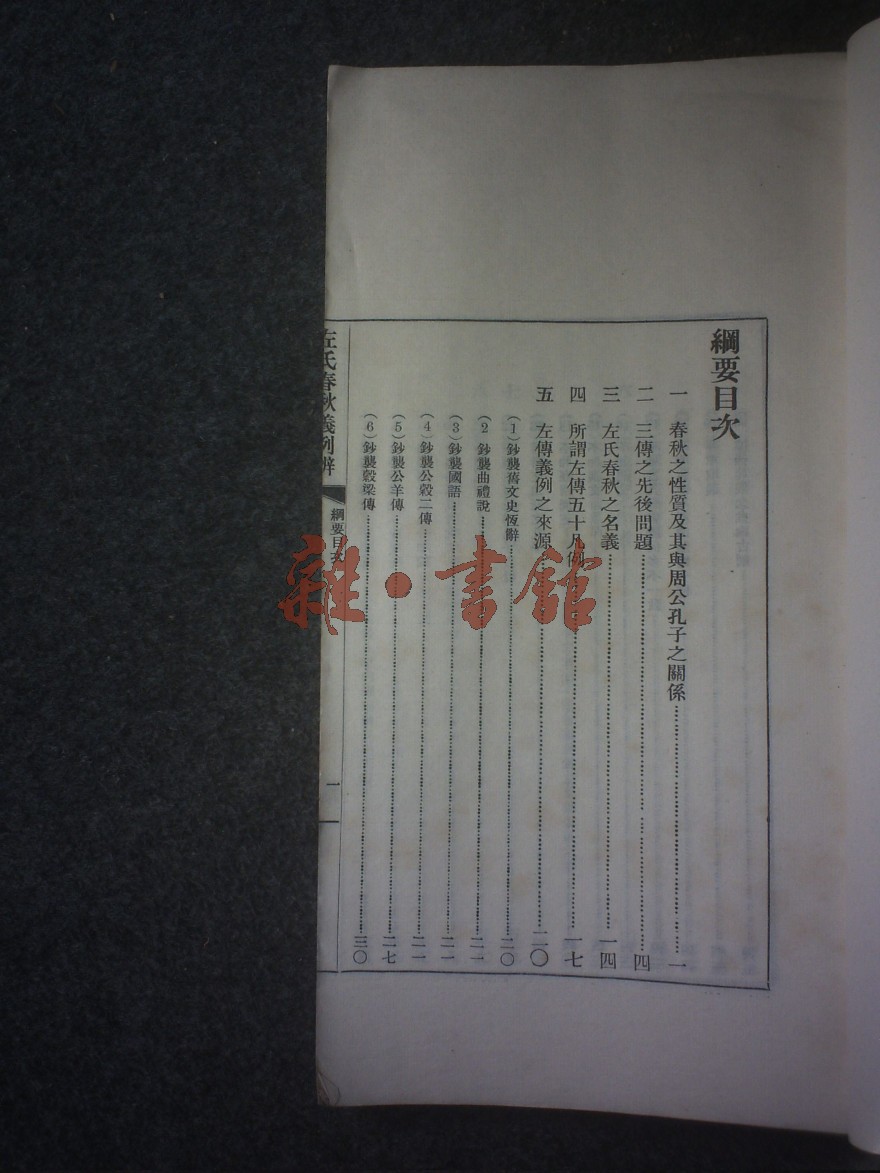 綱要目次
一 春秋之性質及其與周公孔子之關係……一
二 三傳之先後問題……四
三 左氏春秋之名義……一四
四 所謂左傳五十凡例……一七
五 左傳義例之來源……二〇
(1)鈔襲舊文史恆辭……二〇
(2)鈔襲曲禮說……二一
(3)鈔襲國語……二一
(4)鈔襲公穀二傳……二一
(5)鈔襲公羊傳……二七
(6)鈔襲穀梁傳……三〇
左氏春秋義例辨
綱要目次
一
雜·書館